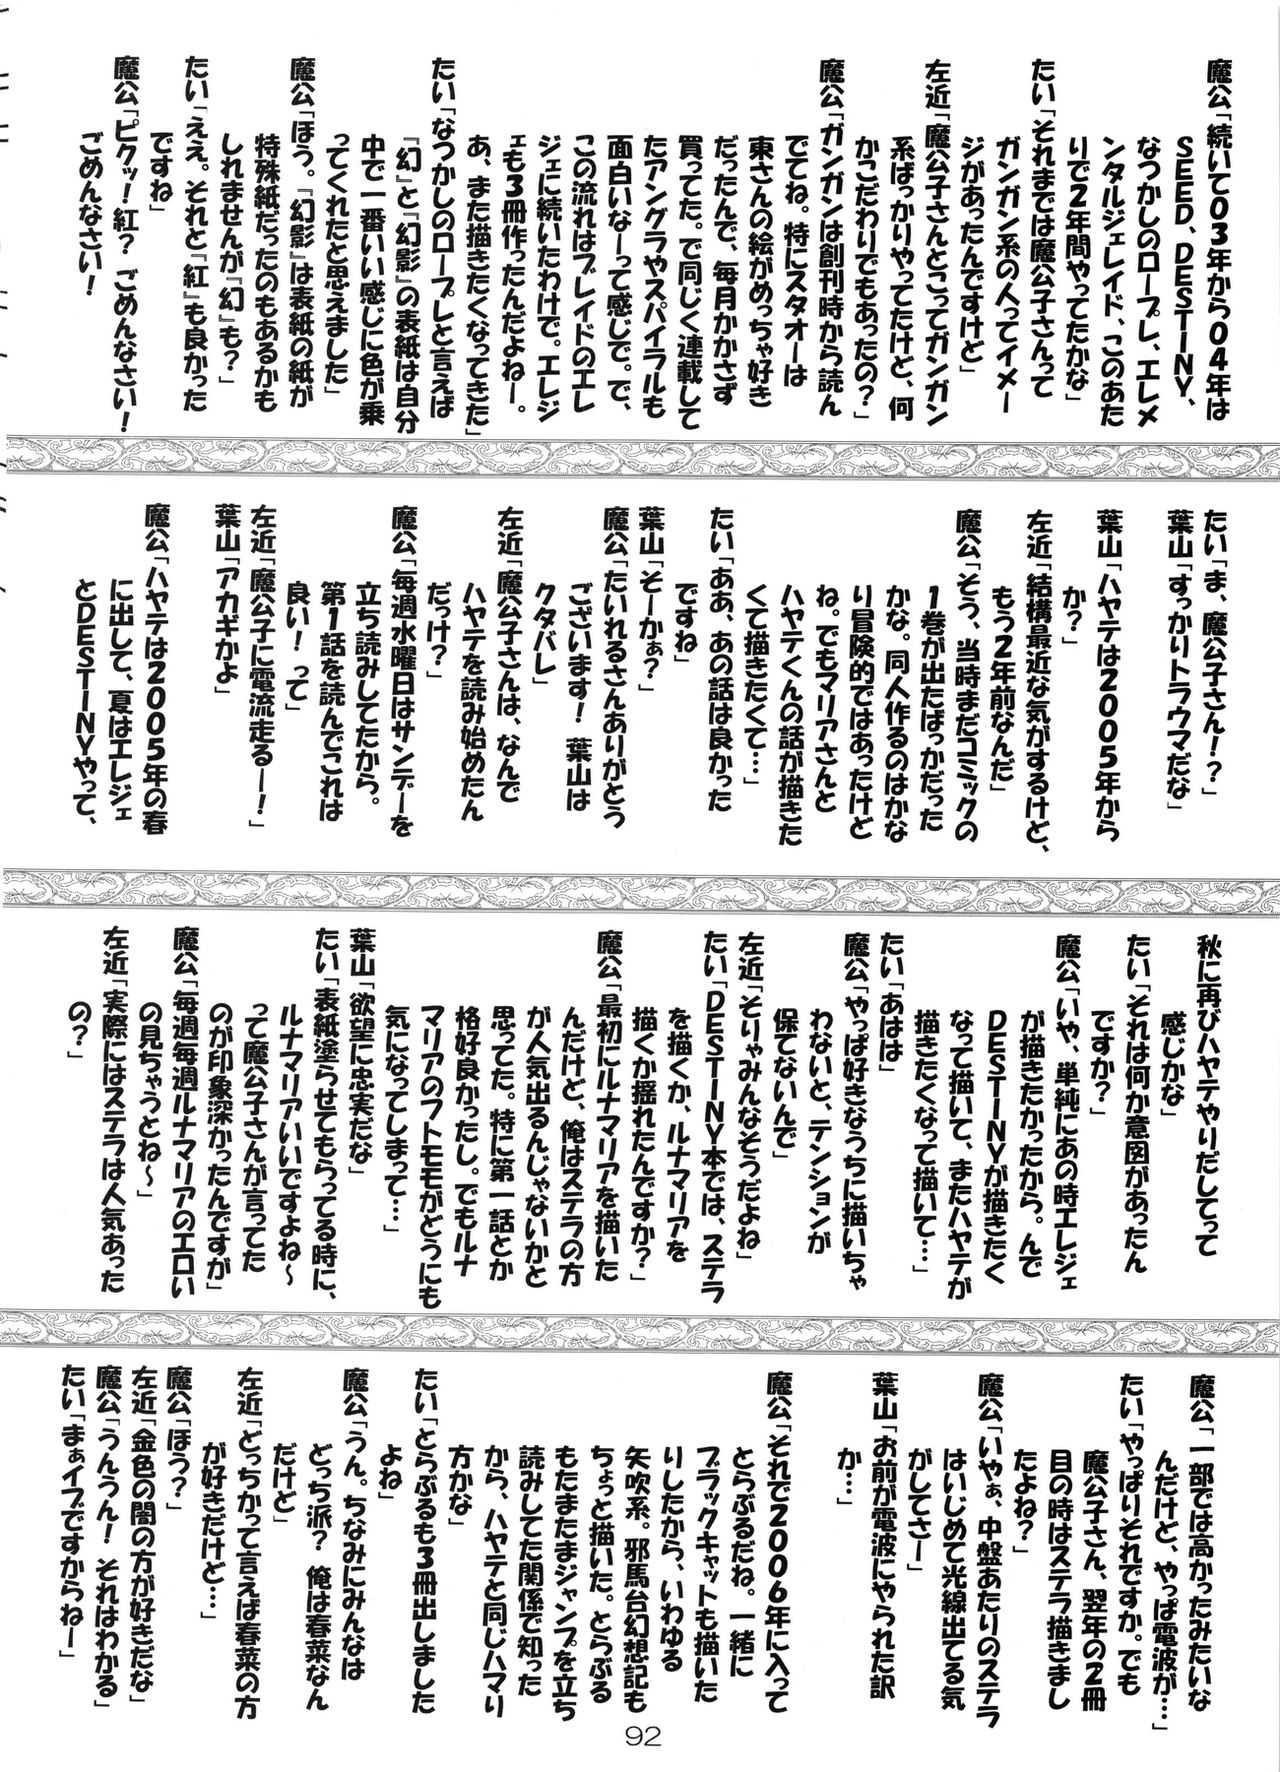 魔公「続いて03年から04年は
SEED、DESTINY、
なつかしのロープレ、エレメ
ンタルジェレイド、このあた
りで2年間やってたかな」
たい「それまでは魔公子さんって
ガンガン系の人ってイメー
ジがあったんですけど」
左近「魔公子さんとこってガンガン
系ばっかりやってたけど、何
かこだわりでもあったの?」
魔公「ガンガンは創刊時から読ん
でてね。特にスタオーは
東さんの絵がめっちゃ好き
だったんで、毎月かかさず
買ってた。で同じく連載して
たアングラやスパイラルも
面白いなーって感じで。で、
この流れはブレイドのエレ
ジェに続いたわけで。エレジ
ェも3冊作ったんだよねー。
あ、また描きたくなってきた」
たい「なつかしのロープレと言えば
『幻』と『幻影』の表紙は自分
中で一番いい感じに色が乗
ってくれたと思えました」
魔公「ほう。『幻影』は表紙の紙が
特殊紙だったのもあるかも
しれませんが『幻』も?」
たい「ええ。それと『紅』も良かった
ですね」
魔公「ピクッ!紅? ごめんなさい!
ごめんなさい!
たい「ま、魔公子さん!?」
葉山「すっかりトラウマだな」
葉山「ハヤテは2005年から
か?」
左近「結構最近な気がするけど、
もう2年前なんだ」
魔公「そう、当時まだコミックの
1巻が出たばっかだった
かな。同人作るのはかな
り冒険的ではあったけど
ね。でもマリアさんと
ハヤテくんの話が描きた
くて描きたくて…」
たい「ああ、あの話は良かった
ですね」
葉山「そーかぁ?」
魔公「たいれるさんありがとう
ございます! 葉山は
クタバレ」
左近「魔公子さんは、なんで
ハヤテを読み始めたん
だっけ?」
魔公「毎週水曜日はサンデーを
立ち読みしてたから。
第1話を読んでこれは
良い!って」
左近「魔公子に電流走るー!」
葉山「アカギかよ」
魔公「ハヤテは2005年の春
に出して、夏はエレジェ
とDESTINYやって、
秋に再びハヤテやりだしてって
感じかな」
たい「それは何か意図があったん
ですか?」
魔公「いや、単純にあの時エレジェ
が描きたかったから。んで
DESTINYが描きたく
なって描いて、またハヤテが
描きたくなって描いて…」
たい「あはは」
魔公「やっぱ好きなうちに描いちゃ
わないと、テンションが
保てないんで」
左近「そりゃみんなそうだよね」
たい「DESTINY本では、ステラ
を描くか、ルナマリアを
描くか揺れたんですか?」
魔公「最初にルナマリアを描いた
んだけど、俺はステラの方
が人気出るんじゃないかと
思ってた。特に第一話とか
格好良かったし。でもルナ
マリアのフトモモがどうにも
気になってしまって…」
葉山「欲望に忠実だな」
たい「表紙塗らせてもらってる時に、
ルナマリアいいですよね～
って魔公子さんが言ってた
のが印象深かったんですが」
魔公「毎週毎週ルナマリアのエロい
の見ちゃうとね～」
左近「実際にはステラは人気あった
の?」
魔公「一部では高かったみたいな
んだけど、やっぱ電波が…」
たい「やっぱりそれですか。でも
魔公子さん、翌年の2冊
目の時はステラ描きまし
たよね?」
魔公「いやぁ、中盤あたりのステラ
はいじめて光線出てる気
がしてさー」
葉山「お前が電波にやられた訳
か…」
魔公「それで2006年に入って
とらぶるだね。一緒に
ブラックキャットも描いた
りしたから、いわゆる
矢吹系。邪馬台幻想記も
ちょっと描いた。とらぶる
もたまたまジャンプを立ち
読みしてた関係で知った
から、ハヤテと同じハマり
方かな」
たい「とらぶるも3冊出しました
よね」
魔公「うん。ちなみにみんなは
どっち派? 俺は春菜なん
だけど」
左近「どっちかって言えば春菜の方
が好きだけど…」
魔公「ほう?」
左近「金色の闇の方が好きだな」
魔公「うんうん!それはわかる」
たい「まぁイブですからねー」
92